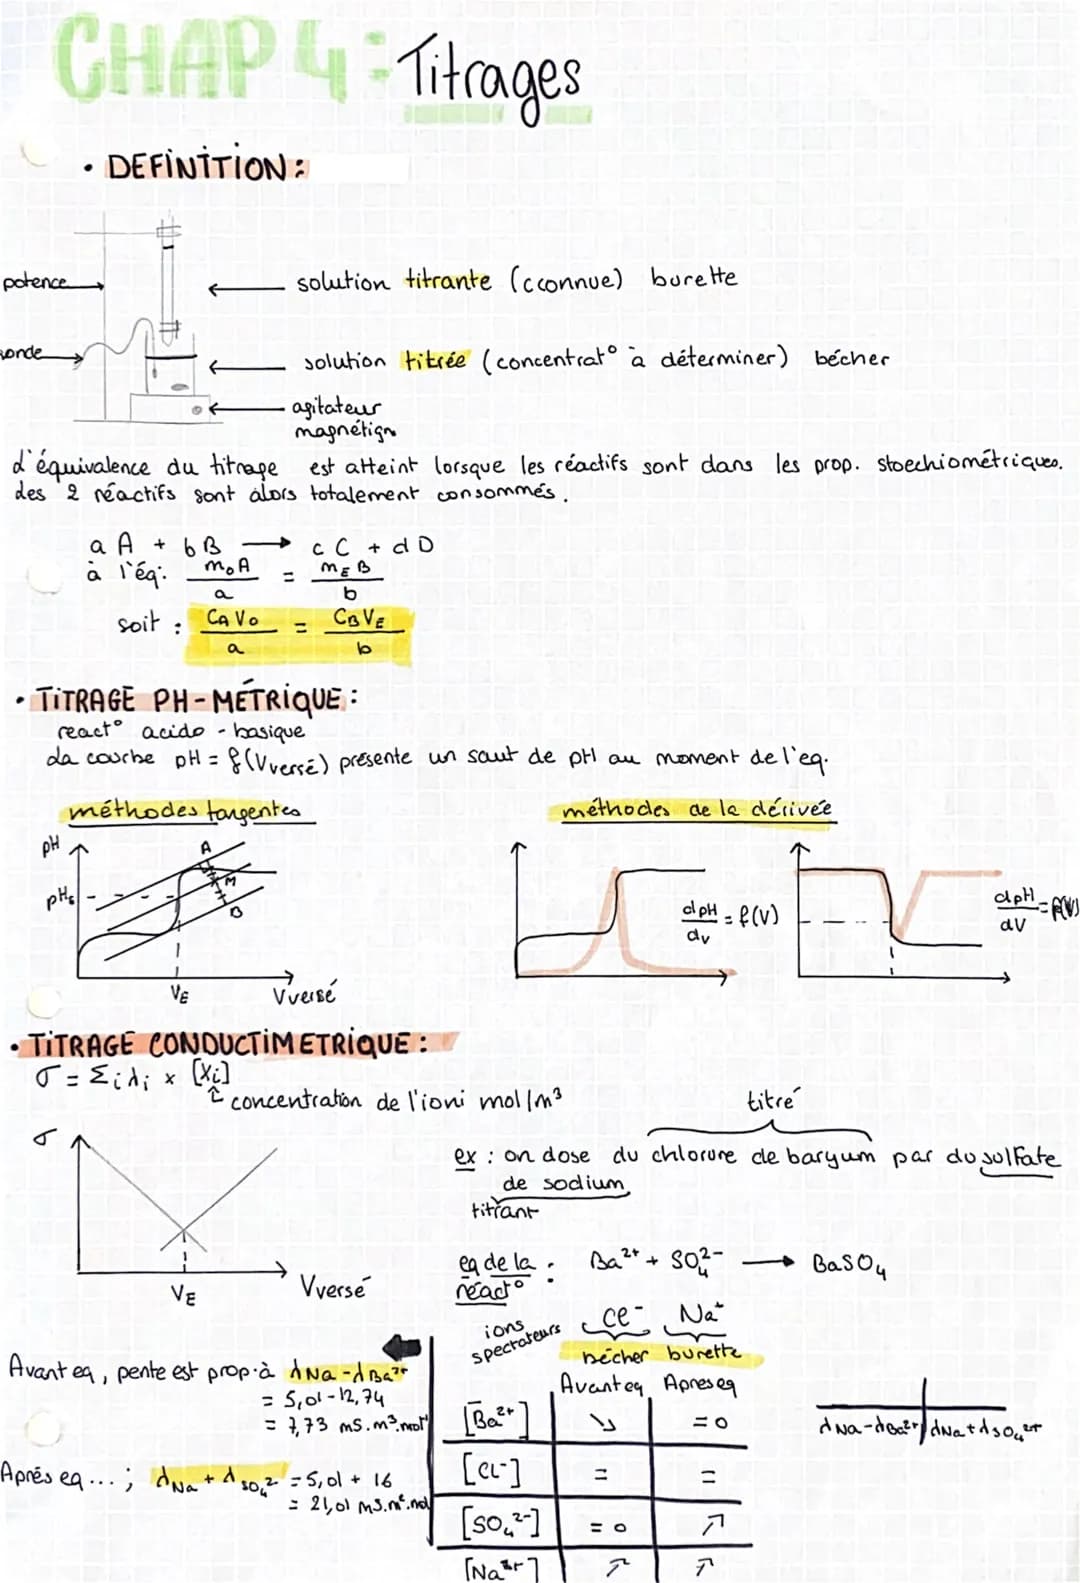 CHAP 4 : Titrages
• DEFINITION :
potence
solution titrante (cconnue) burette
sonde
solution titrée (concentrat° à déterminer) bécher
agitateur
magnétiqn
L'équivalence du titrage est atteint lorsque les réactifs sont dans les prop. stoechiométriques.
Les 2 réactifs sont alors totalement consommés.
a A + b B → c C + d D
à l'éq: m₀A/a = mE B/b
soit : CA V0/a = CB VE/b
• TITRAGE PH-MÉTRIQUE :
react° acido-basique
La courbe pH = f(Vversé) présente un saut de pH au moment de l'eq.
méthodes tangentes
méthodes de la dérivée
pH
A
M
B
VE
Vversé
dpH/dv = f(V)
dpH/dV = f(V)
• TITRAGE CONDUCTIMETRIQUE :
σ = Σi λi × [Xi]
concentration de l'ioni mol/m³
titré
σ
ex : on dose du chlorure de baryum par du sulfate
de sodium
titrant
VE
Vversé
eq de la réact° : Ba²⁺ + SO₄²⁻ → BaSO₄
ions spectateurs
Cl⁻ Na⁺
bécher burette
Avant eq, pente est prop. à λNa - λBa²⁺
= 5,01 - 12,74
= 7,73 mS.m³.mol
Après eq ... ; λNa + λSO₄²⁻ = 5,01 + 16
= 21,01 mS.m².mol
Avant eq Apres eq
[Ba²⁺] ↘ = 0
[Cl⁻] = =
[SO₄²⁻] = 0 ↗
[Na²⁺] ↗ ↗
λNa - λBa²⁺ | λNa + λSO₄²⁺